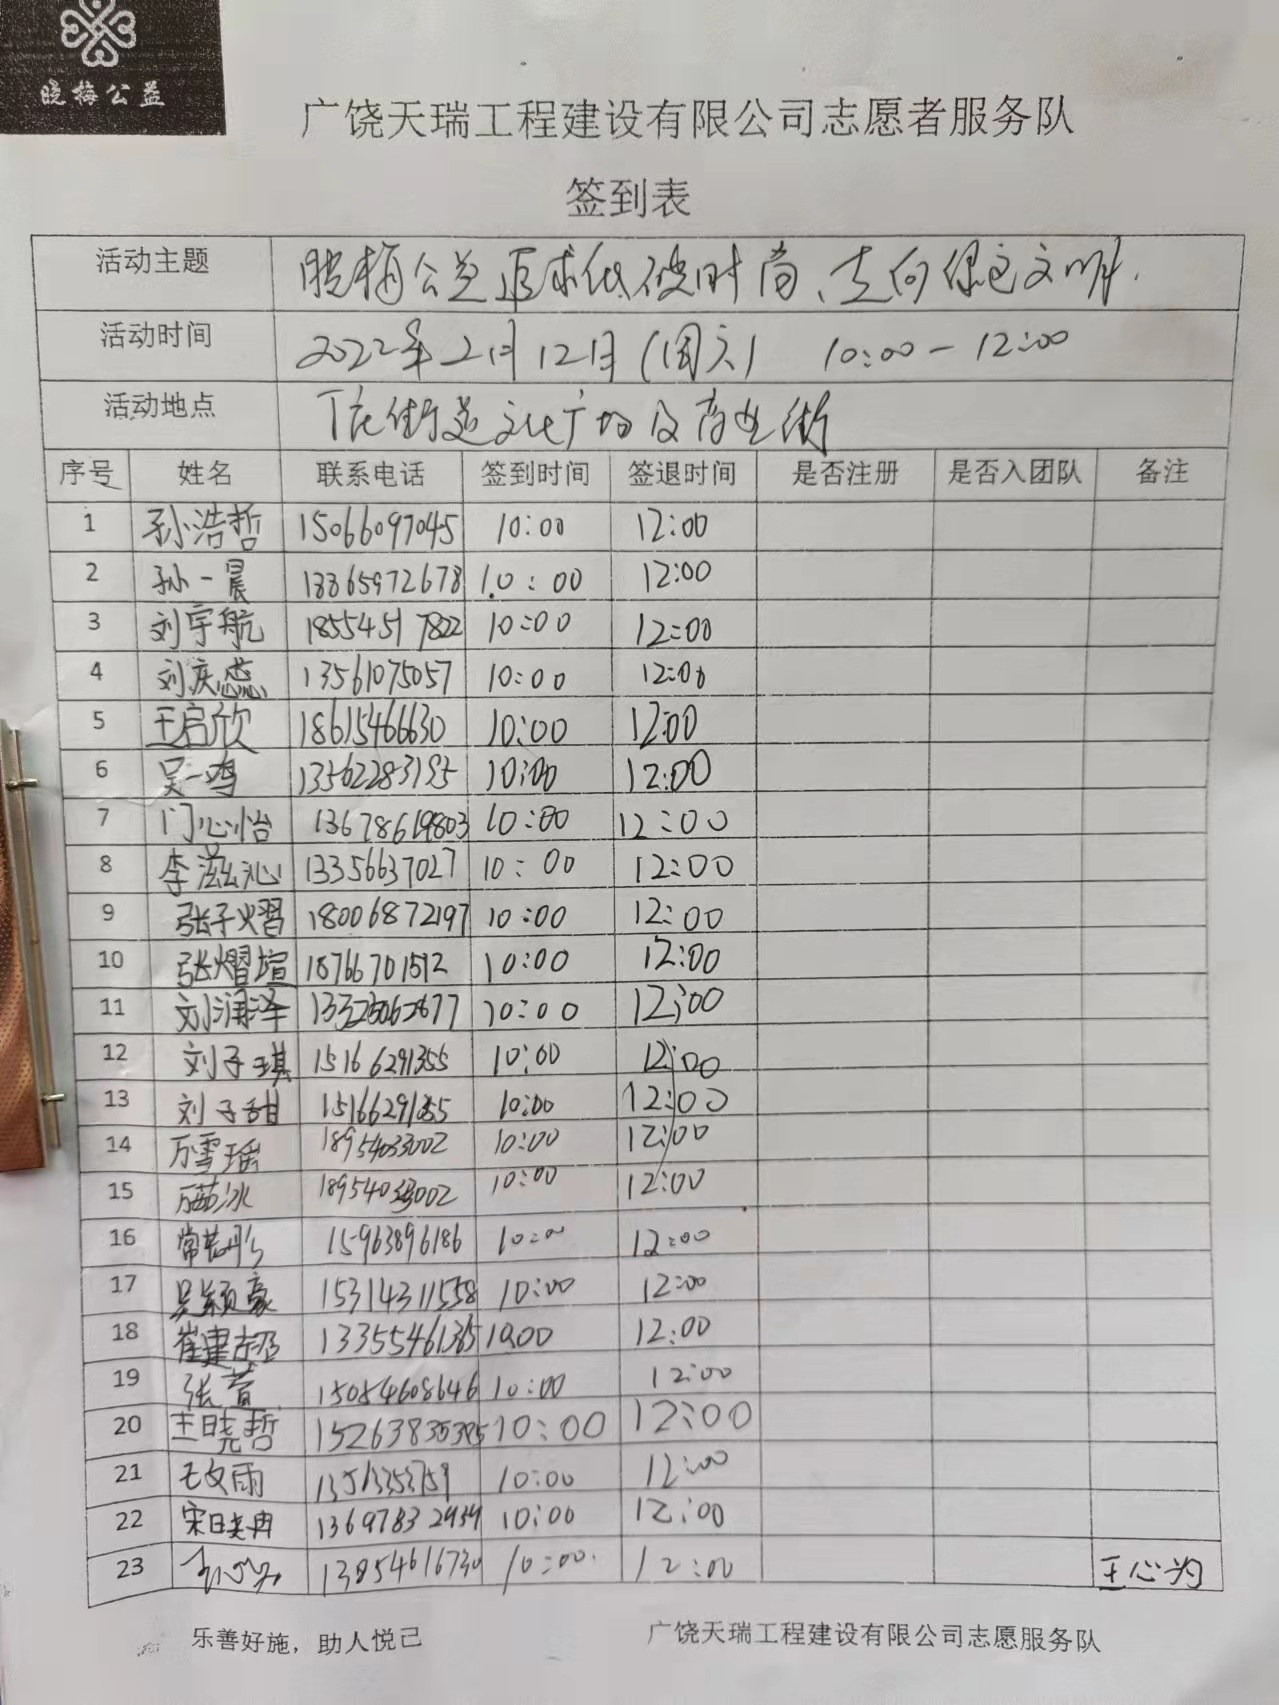 晓梅公益
广饶天瑞工程建设有限公司志愿者服务队
签到表
活动主题 晓梅公益追求低碳时尚、走向绿色文明.
活动时间 2022年2月12日(周六) 10:00-12:00
活动地点 丁庄街道文化广场及商业街
序号 姓名 联系电话 签到时间 签退时间 是否注册 是否入团队 备注
1 孙浩哲 15066097045 10:00 12:00
2 孙一晨 13365972678 10:00 12:00
3 刘宇航 18554517822 10:00 12:00
4 刘庆蕊 13561075057 10:00 12:00
5 王启欣 18615466630 10:00 12:00
6 吴一鸣 13562283195 10:00 12:00
7 门心怡 13678619803 10:00 12:00
8 李滋沁 13356637027 10:00 12:00
9 张子熠 18006872197 10:00 12:00
10 张熠瑄 18766701512 10:00 12:00
11 刘润泽 10:00 12:00
12 刘子琪 15166291355 10:00 12:00
13 刘子甜 15166291355 10:00 12:00
14 万雪瑶 18954033002 10:00 12:00
15 18954033002 10:00 12:00
16 15963896186 10:00 12:00
17 吴颖豪 15314311558 10:00 12:00
18 崔建超 13355461365 10:00 12:00
19 张萱 15054608646 10:00 12:00
20 王晓哲 10:00 12:00
21 10:00 12:00
22 宋日炎冉 13697832939 10:00 12:00
23 13854616730 10:00 12:00 王心为
乐善好施，助人悦己 广饶天瑞工程建设有限公司志愿服务队